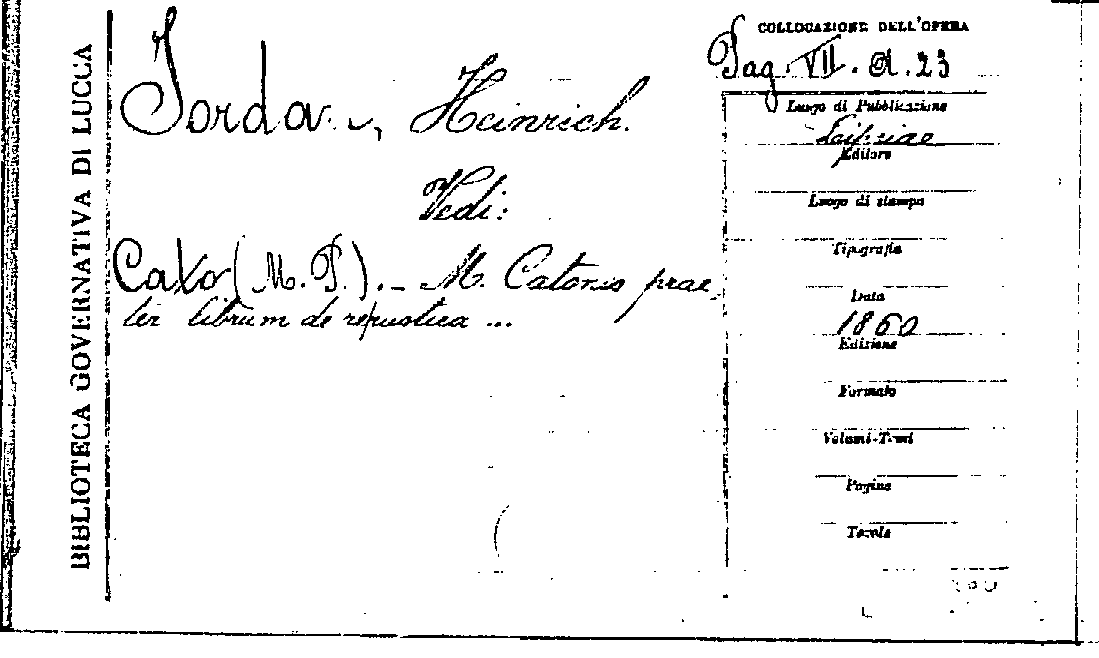 BIBLIOTECA GOVERNATIVA DI LUCCA
Jordan, Heinrich.
Vedi:
Cato (M. P.). - M. Catonis prae-
ter librum de re rustica ...
COLLOCAZIONE DELL'OPERA
Pag. VII. A. 23
Luogo di Pubblicazione
Lipsiae
Editore
Luogo di stampa
Tipografia
Data
1860
Edizione
Formato
Volumi-Tomi
Pagine
Tavole